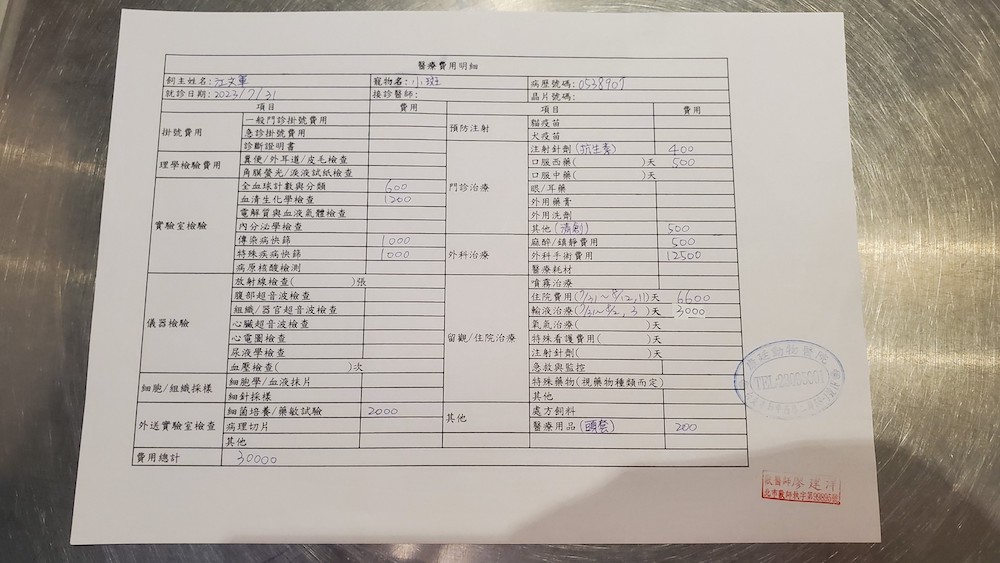 醫療費用明細
飼主姓名:江文軍 寵物名:小斑 病歷號碼:0538907
就診日期:2023/7/31 接診醫師: 晶片號碼:
項目 費用 項目 費用
掛號費用 一般門診掛號費用
急診掛號費用
診斷證明書
理學檢驗費用 糞便/外耳道/皮毛檢查
角膜螢光/淚液試紙檢查
實驗室檢驗 全血球計數與分類 600
血清生化學檢查 1200
電解質與血液氣體檢查
內分泌學檢查
傳染病快篩 1000
特殊疾病快篩 1000
病原核酸檢測
儀器檢驗 放射線檢查( )張
腹部超音波檢查
組織/器官超音波檢查
心臟超音波檢查
心電圖檢查
尿液學檢查
血壓檢查( )次
細胞/組織採樣 細胞學/血液抹片
細針採樣
外送實驗室檢查 細菌培養/藥敏試驗 2000
病理切片
其他
費用總計 30000
預防注射 貓疫苗
犬疫苗
門診治療 注射針劑(抗生素) 400
口服西藥( )天 500
口服中藥( )天
眼/耳藥
外用藥膏
外用洗劑
其他(清創) 500
外科治療 麻醉/鎮靜費用 500
外科手術費用 12500
醫療耗材
留觀/住院治療 噴霧治療
住院費用(7/31~8/12,11)天 6600
輸液治療(7/31~8/2, 3 )天 3000
氧氣治療( )天
特殊看護費用( )天
注射針劑( )天
急救與監控
特殊藥物(視藥物種類而定)
其他
其他 處方飼料
醫療用品(頭套) 200
動物醫院
獸醫師廖建